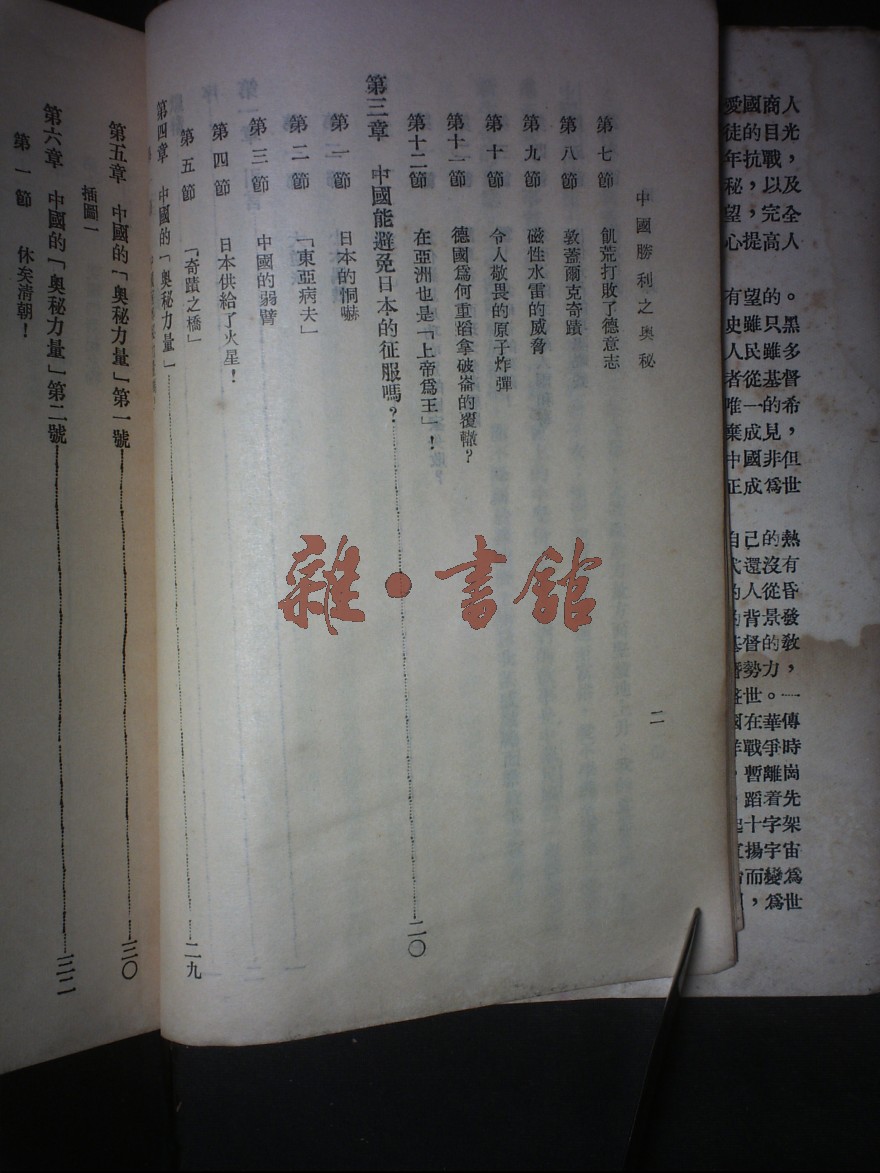 愛國商人
徒的目光，
年抗戰，
秘，以及
望完全
心，提高人
有望的。
史雖只黑
人民雖多
者從基督
唯一的希
棄成見，
中國非但
正成爲世
自己的熱
還沒有
人從昏
背景發
基督的教
勢力，
世。一
國在華傳
戰爭時
暫離崗
蹈着先
起十字架
揚宇宙
而變爲
，爲世
中國勝利之奧秘
二
第七節 飢荒打敗了德意志
第八節 敦蓋爾克奇蹟
第九節 磁性水雷的威脅
第十節 令人敬畏的原子炸彈
第十一節 德國爲何重蹈拿破崙的覆轍？
第十二節 在亞洲也是「上帝爲王」！
第三章 中國能避免日本的征服嗎？……二〇
第一節 日本的恫嚇
第二節 「東亞病夫」
第三節 中國的弱臂
第四節 日本供給了火星！
第五節 「奇蹟之橋」
第四章 中國的「奧秘力量」……二九
第五章 中國的「奧秘力量」第一號……三〇
插圖一
第六章 中國的「奧秘力量」第二號……三二
第一節 休矣清朝！
雜·書館